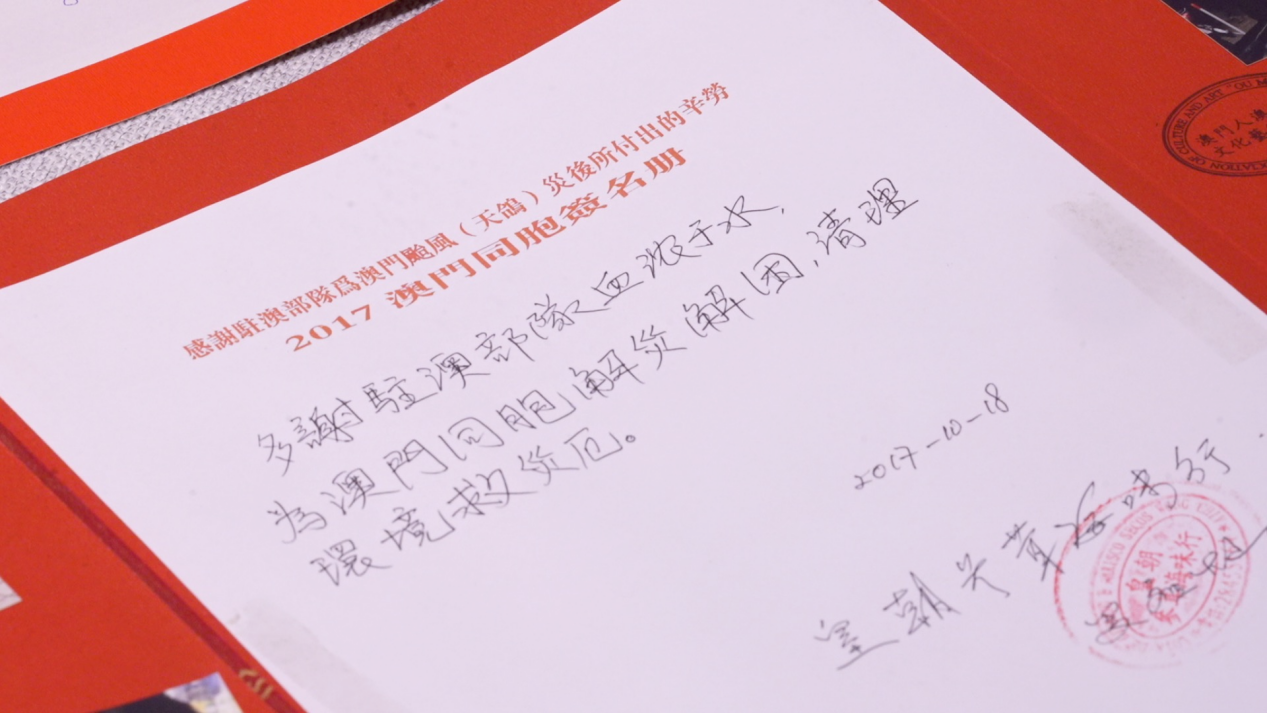 感謝駐澳部隊爲澳門颱風（天鴿）災後所付出的辛勞
2017 澳門同胞簽名册
多謝駐澳部隊血浓于水，
為澳門同胞解災解困，清理
環境救災厄。
2017-10-18
皇朝茸海味行
皇朝
海味行
CULTURE AND ART "OU M
澳門人澳
文化藝
CIATION OF